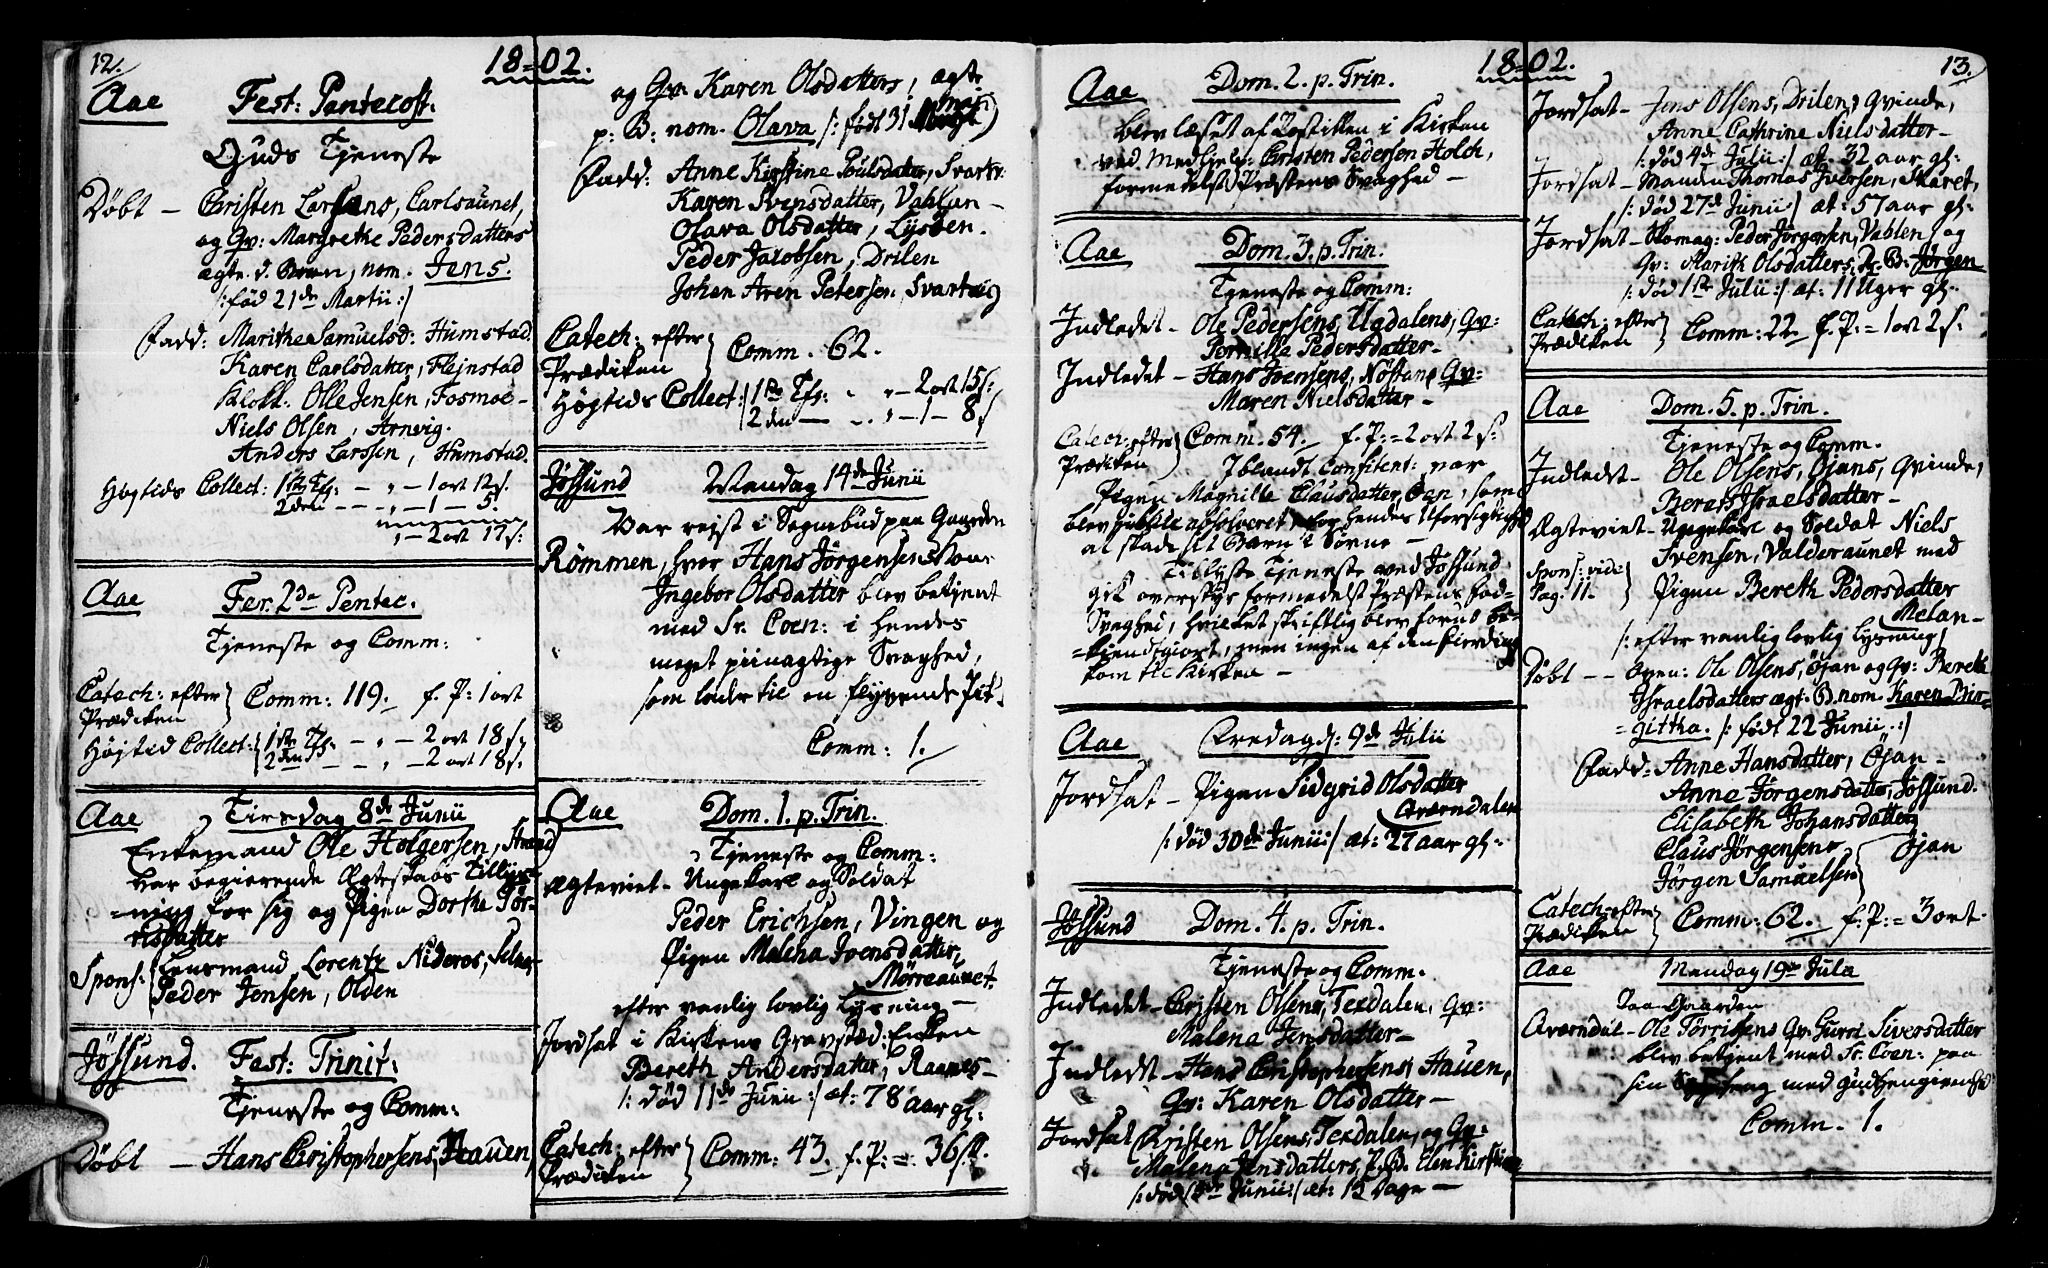 12.
18=02.
Aae Fest: Pentecost:
Guds Tjeneste
Døbt — Christen Larsens, Carlsaunet,
og Qv: Margrethe Pedersdatters
ægte d. Barn, nom. Jens.
/: fød 21de Martii :/
Fadd: Marithe Samuelsd: Humstad.
Karen Carlsdatter, Flejnstad
Klokk. Olle Jensen, Fosmoe —
Niels Olsen, Arnvig.
Anders Larssen, Humstad.
Høytids Collect: 1ste Tfl: — „ — 1 ort 12 s.
2den — — „ — 1 — 5.
„ — 2 ort 17 s:
Aae Fer. 2da Pentec.
Tjeneste og Comm:
Catech: efter Prædiken } Comm: 119. f. P: 1 ort
Højtid Collect: 1ste Tfl: — „ — 2 ort 18 s.
2den — — „ — 2 ort 18 s.
Aae Tirsdag 8de Junii
Enkemand Ole Holgersen, Strand
har begierende Ægteskabs Tillys=
=ning for sig og Pigen Dorthe Tør=
risdatter
Spons: Lensmand Lorentz Nideros, Selnes
Peder Jensen, Olden
Jøssund. Fest: Trinit:
Tjeneste og Comm:
Døbt — Hans Christophersens, Hauen
og Qv: Karen Olsdatters, ægte
p: B: nom. Olava /: født 31 Maji :/
Fadd: Anne Kirstine Poulsdatter, Svartv:
Karen Svensdatter, Vahlan —
Olava Olsdatter, Lysøen.
Peder Jacobsen, Drilen
Johan Aren Petersen, Svartvig
Catech: efter Prædiken } Comm. 62.
Højtids Collect: 1ste Tfl: „ — 2 ort 15 s:
2den — „ — 1 — 8 s
Jøssund Mandag 14de Junii
Var rejst i Sognebud paa Gaarden
Rømmen, hvor Hans Jørgensens Kone
Ingebor Olsdatter blev betjent
med Sr. Coen: i hendes
meget piinagtige Svaghed,
som lader til en flyvende Git.
Comm: 1.
Aae Dom. 1. p. Trin.
Tjeneste og Comm:
Ægteviet — Ungekarl og Soldat
Peder Erichsen, Vingen og
Pigen Malena Ivensdatter,
Mørreaunet.
efter vanlig lovlig Lysning —
Jordsat i Kirkens Gravsted: Enken
Bereth Andersdatter, Raanes —
/: død 11de Junii :/ æt: 78 aar gl:
Catech: efter Prædiken } Comm: 43. f. P: = 36 s.
18=02.
13.
Aae Dom. 2. p. Trin.
blev læset af Postillen i Kirken
ved Medhjelp: Christen Pedersen Holch,
formedelst Præstens Svaghed —
Aae Dom. 3. p. Trin.
Tjeneste og Comm:
Indledet — Ole Pedersens, Ugdalens, Qv:
Pernille Pedersdatter —
Indledet — Hans Ivensens, Nøstan, Qv:
Maren Nielsdatter —
Catech: efter Prædiken } Comm. 54. f. P: = 2 ort 2 s:
Iblandt Confitent: var
Pigen Magnille Clausdatter, som
blev publice absolveret for hendes Uforsigtighed
at skade sit Barn i Søvne —
Tillyste Tjeneste ved Jøssund
gik overstyr formedelst Præstens Fod=
Svaghed, hvilket skriftlig blev forud be=
=kiendtgiort, men ingen af den Fierding
kom til Kirken —
Aae Fredag d: 9de Julii
Jordsat — Pigen Sidgrid Olsdatter
Averndalen
/: død 30de Junii :/ æt: 27 aar gl:
Jøssund Dom. 4. p. Trin.
Tjeneste og Comm.
Indledet — Christen Olsens, Terdalen, Qv:
Malena Jensdatter —
Indledt — Hans Christophersens, Hauen,
Qv: Karen Olsdatter —
Jordsat Christen Olsens, Terdalen, og Qv:
Malena Jensdatters, P. B. Elen Kirstine
/: død de Junii :/ æt: 15 Dage —
Jordsat — Jens Olsens, Drilen, Qvinde,
Anne Cathrine Nielsdatter —
/: død 4de Julii :/ æt. 32 aar gl:
Jordsat — Manden Thomas Iversen, Skaret,
/: død 27de Junii :/ æt: 57 aar gl:
Jordsat — Skomag: Peder Jørgensen, Vahlen, og
Qv: Marith Olsdatters, P. B: Jørgen
/: død 1ste Julii :/ æt: 11 Uger gl:
Catech: efter Prædiken } Comm: 22 f. P: = 1 ort 2 s:
Aae Dom. 5. p. Trin.
Tjeneste og Comm.
Indledt — Ole Olsens, Øjans, Qvinde,
Bereth Israelsdatter —
Ægteviet — Ungekarl og Soldat Niels
Svensen, Valderaunet med
Spons: vide Pag: 11. } Pigen Bereth Pedersdatter
Melan —
/: efter vanlig lovlig Lysning /
Døbt — — Oven: Ole Olsens, Øjan og Qv: Bereth
Israelsdatters ægt. B. nom. Karen Bir=
=githa. /: født 22 Junii :/
Fadd: Anne Hansdatter, Øjan —
Anne Jørgensdatter, Jøssund.
Elisabeth Johansdatter
Claus Jørgensen
Jørgen Samuelsen } Øjan
Catech: efter Prædiken } Comm: 62. f. P: = 3 ort
Aae Mandag 19de Jula
Paa Gaarden
Averndal — Ole Tørrisens Qv: Gurri Siversdatter
blev betjent med Sr. Coen: paa
sin Sygeseng med Gudhengivenhed
Comm. 1.